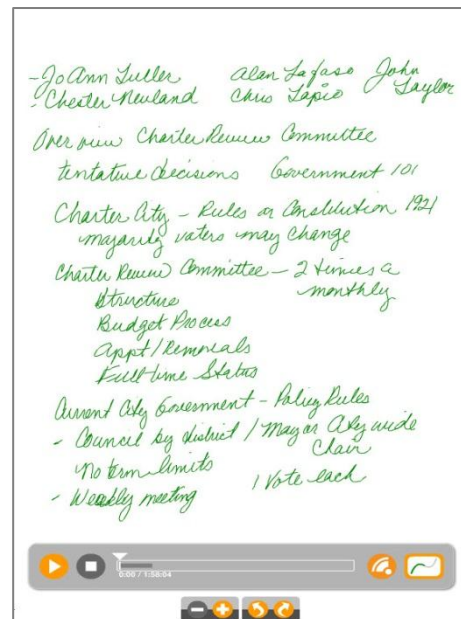 - JoAnn Fuller Alan LoFaso John Taylor
- Chester Newland Chris Tapio
Overview Charter Review Committee
tentative decisions Government 101
Charter City - Rules or Constitution 1921
majority voters may change
Charter Review Committee - 2 times a monthly
Structure
Budget Process
Appt/Removals
Full time Status
Current City Government - Policy Rules
- Council by district / Mayor City wide
Chair
No term limits
1 Vote each
- Weekly meeting
0:00 / 1:58:04